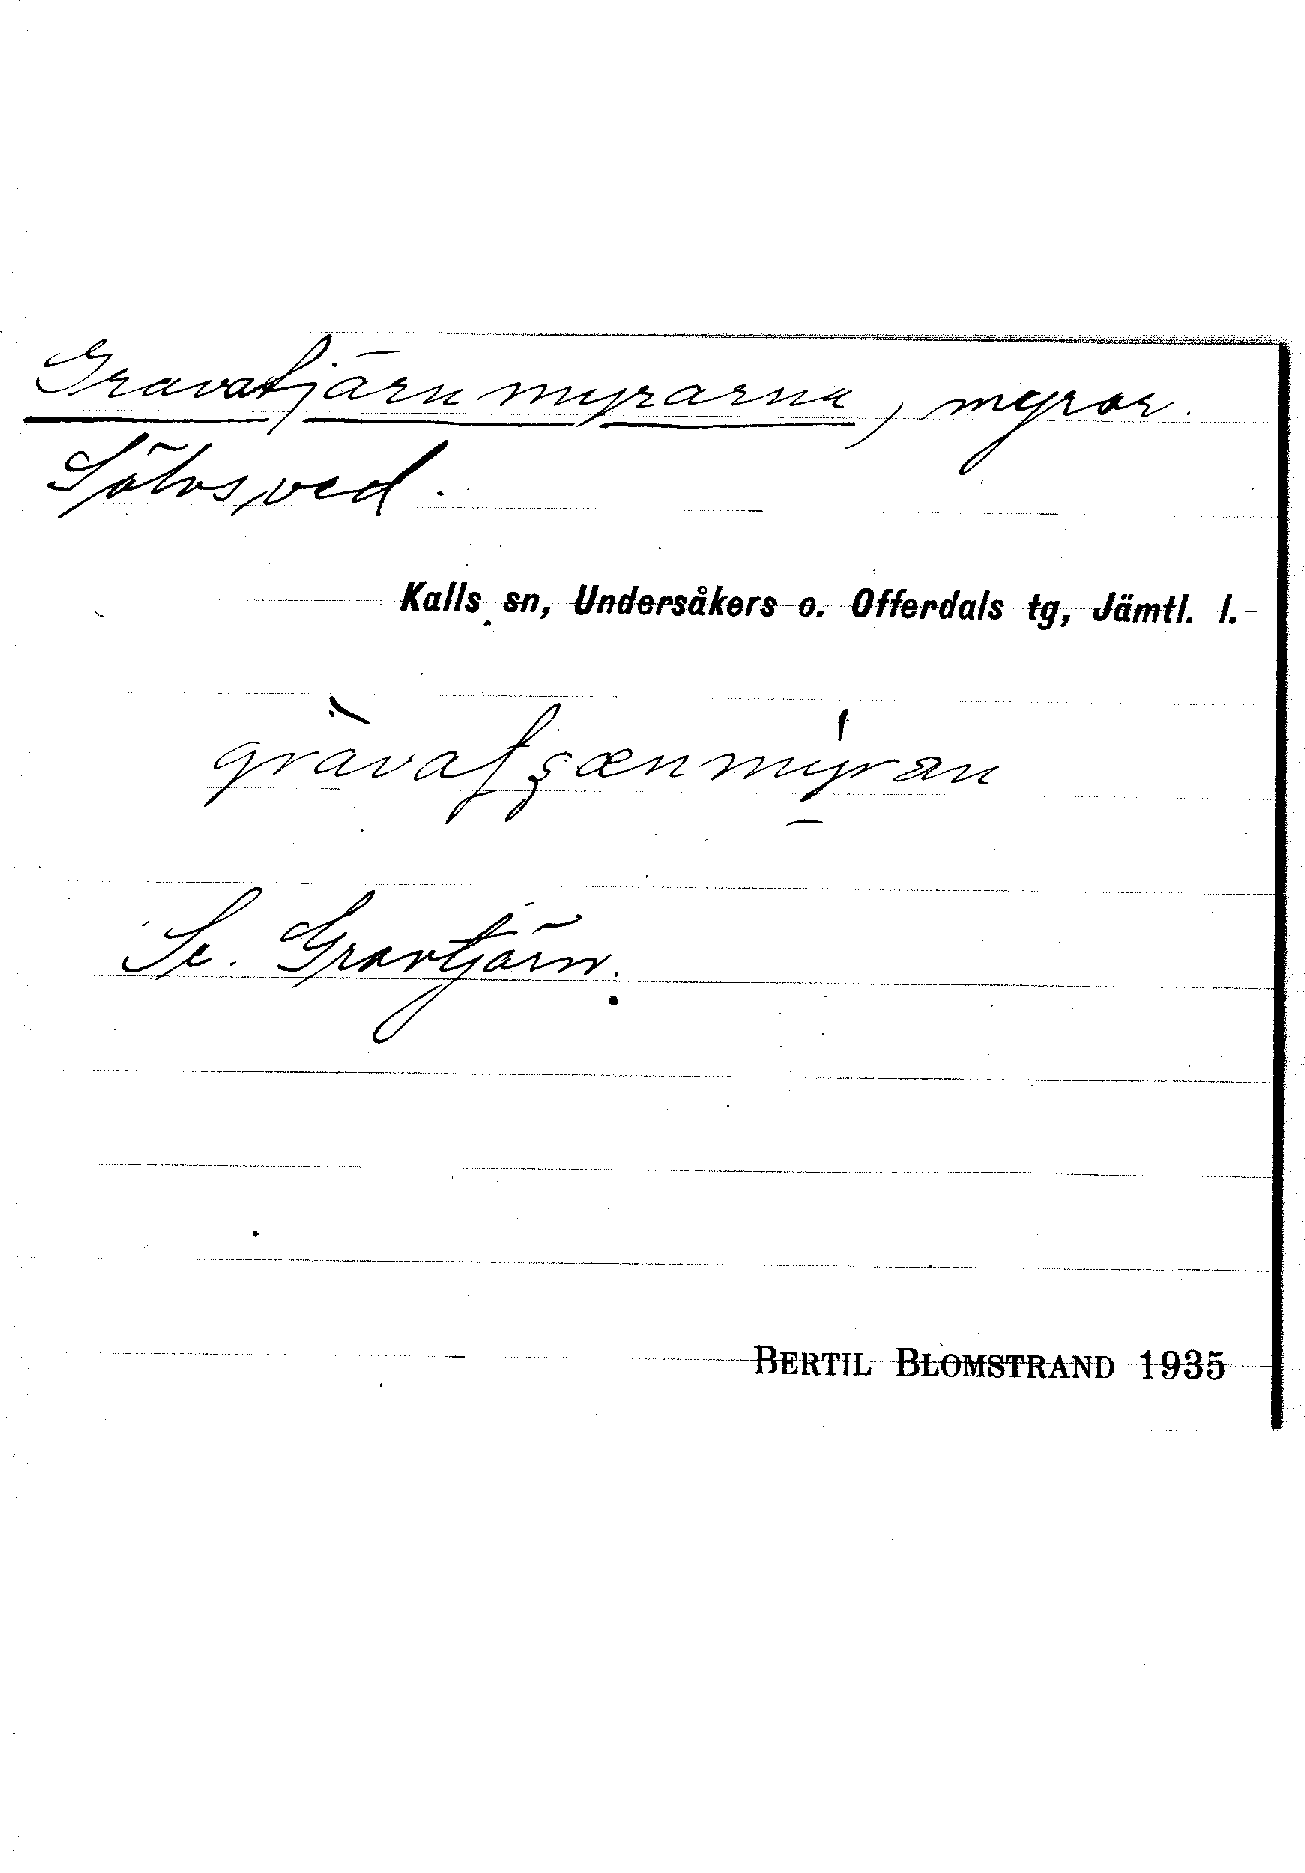 Gravatjärnmyrarna, myror.
Sölvsved.
Kalls sn, Undersåkers o. Offerdals tg, Jämtl. l.
Se. Gravtjärn.
BERTIL BLOMSTRAND 1935